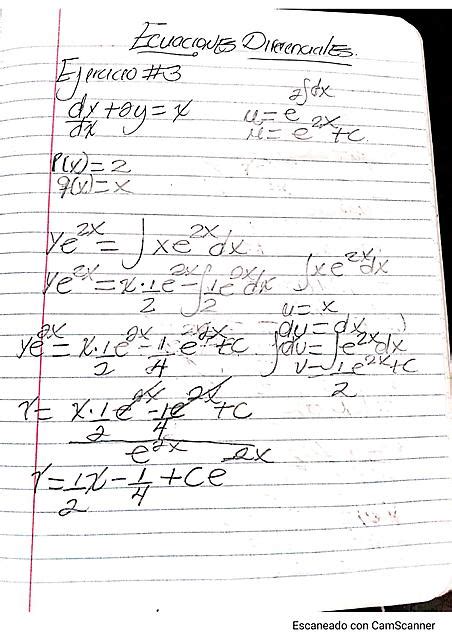 Ecuaciones Diferenciales.
Ejercicio #3
dy/dx + 2y = x
u = e^2∫dx
u = e^2x + c
P(x) = 2
q(x) = x
ye^2x = ∫ x e^2x dx
ye^2x = x · 1/2 e^2x - ∫ 1/2 e^2x dx
∫ x e^2x dx
u = x
du = dx
ye^2x = x · 1/2 e^2x - 1/4 e^2x + c
∫ dv = ∫ e^2x dx
v = 1/2 e^2x + c
Y = (x · 1/2 e^2x - 1/4 e^2x + c) / e^2x
Y = 1/2 x - 1/4 + C e^-2x
Escaneado con CamScanner